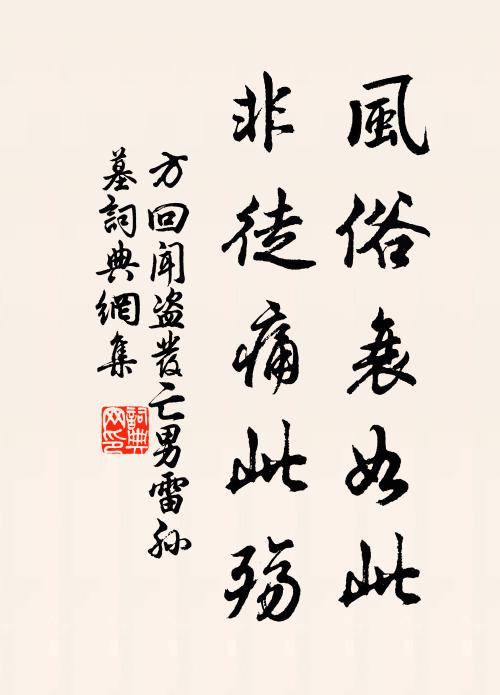 風俗衰如此
非徒痛此殤
方回聞盜發亡男雷孫
墓詞典網集
詞典网印